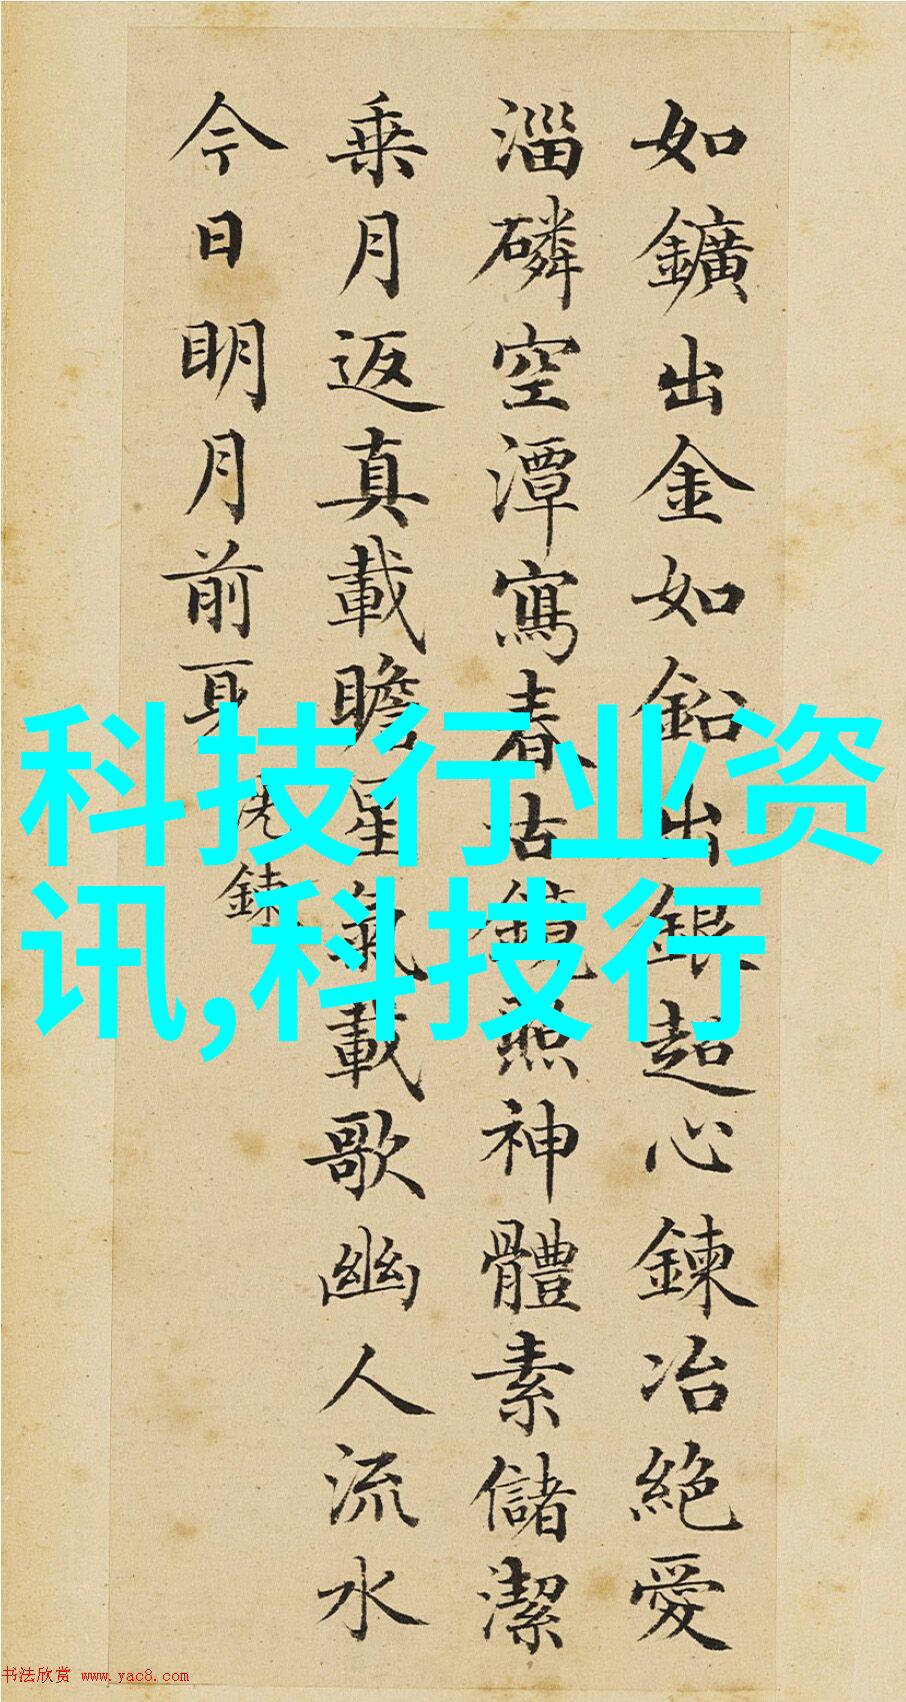 如鑛出金如鉛出銀超心鍊冶絕愛
淄磷空潭寫春古鏡照神體素儲潔
乗月返真載瞻星氣載歌幽人流水
今日明月前身
洗鍊
科技行业资
讯,科技行
书法欣赏 www.yac8.com